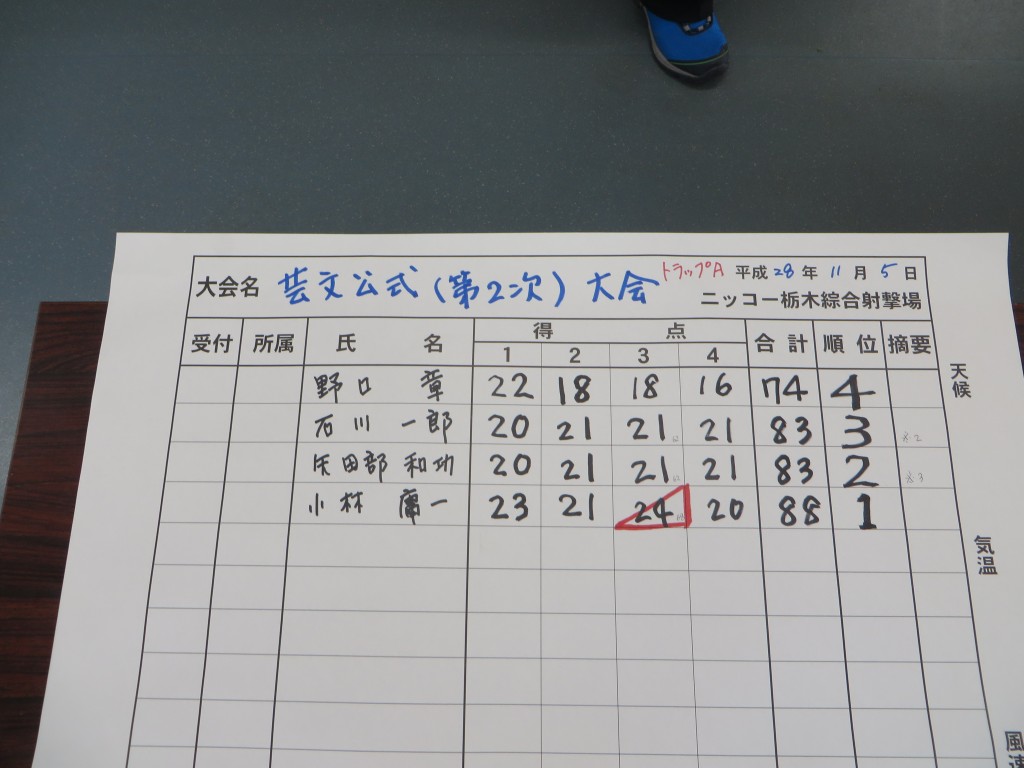 大会名 芸文公式(第2次)大会 トラップA 平成28年11月5日
ニッコー栃木綜合射撃場
受付 所属 氏名 得点 合計 順位 摘要
1 2 3 4
野口 章 22 18 18 16 74 4
石川 一郎 20 21 21 21 83 3
矢田部 和功 20 21 21 21 83 2
小林 一 23 21 24 20 88 1
天候
気温
風速